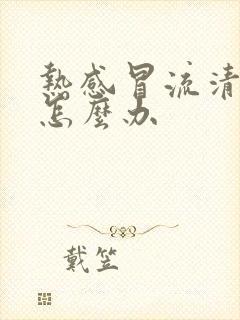 熱感冒流清
怎麼办
戴笠